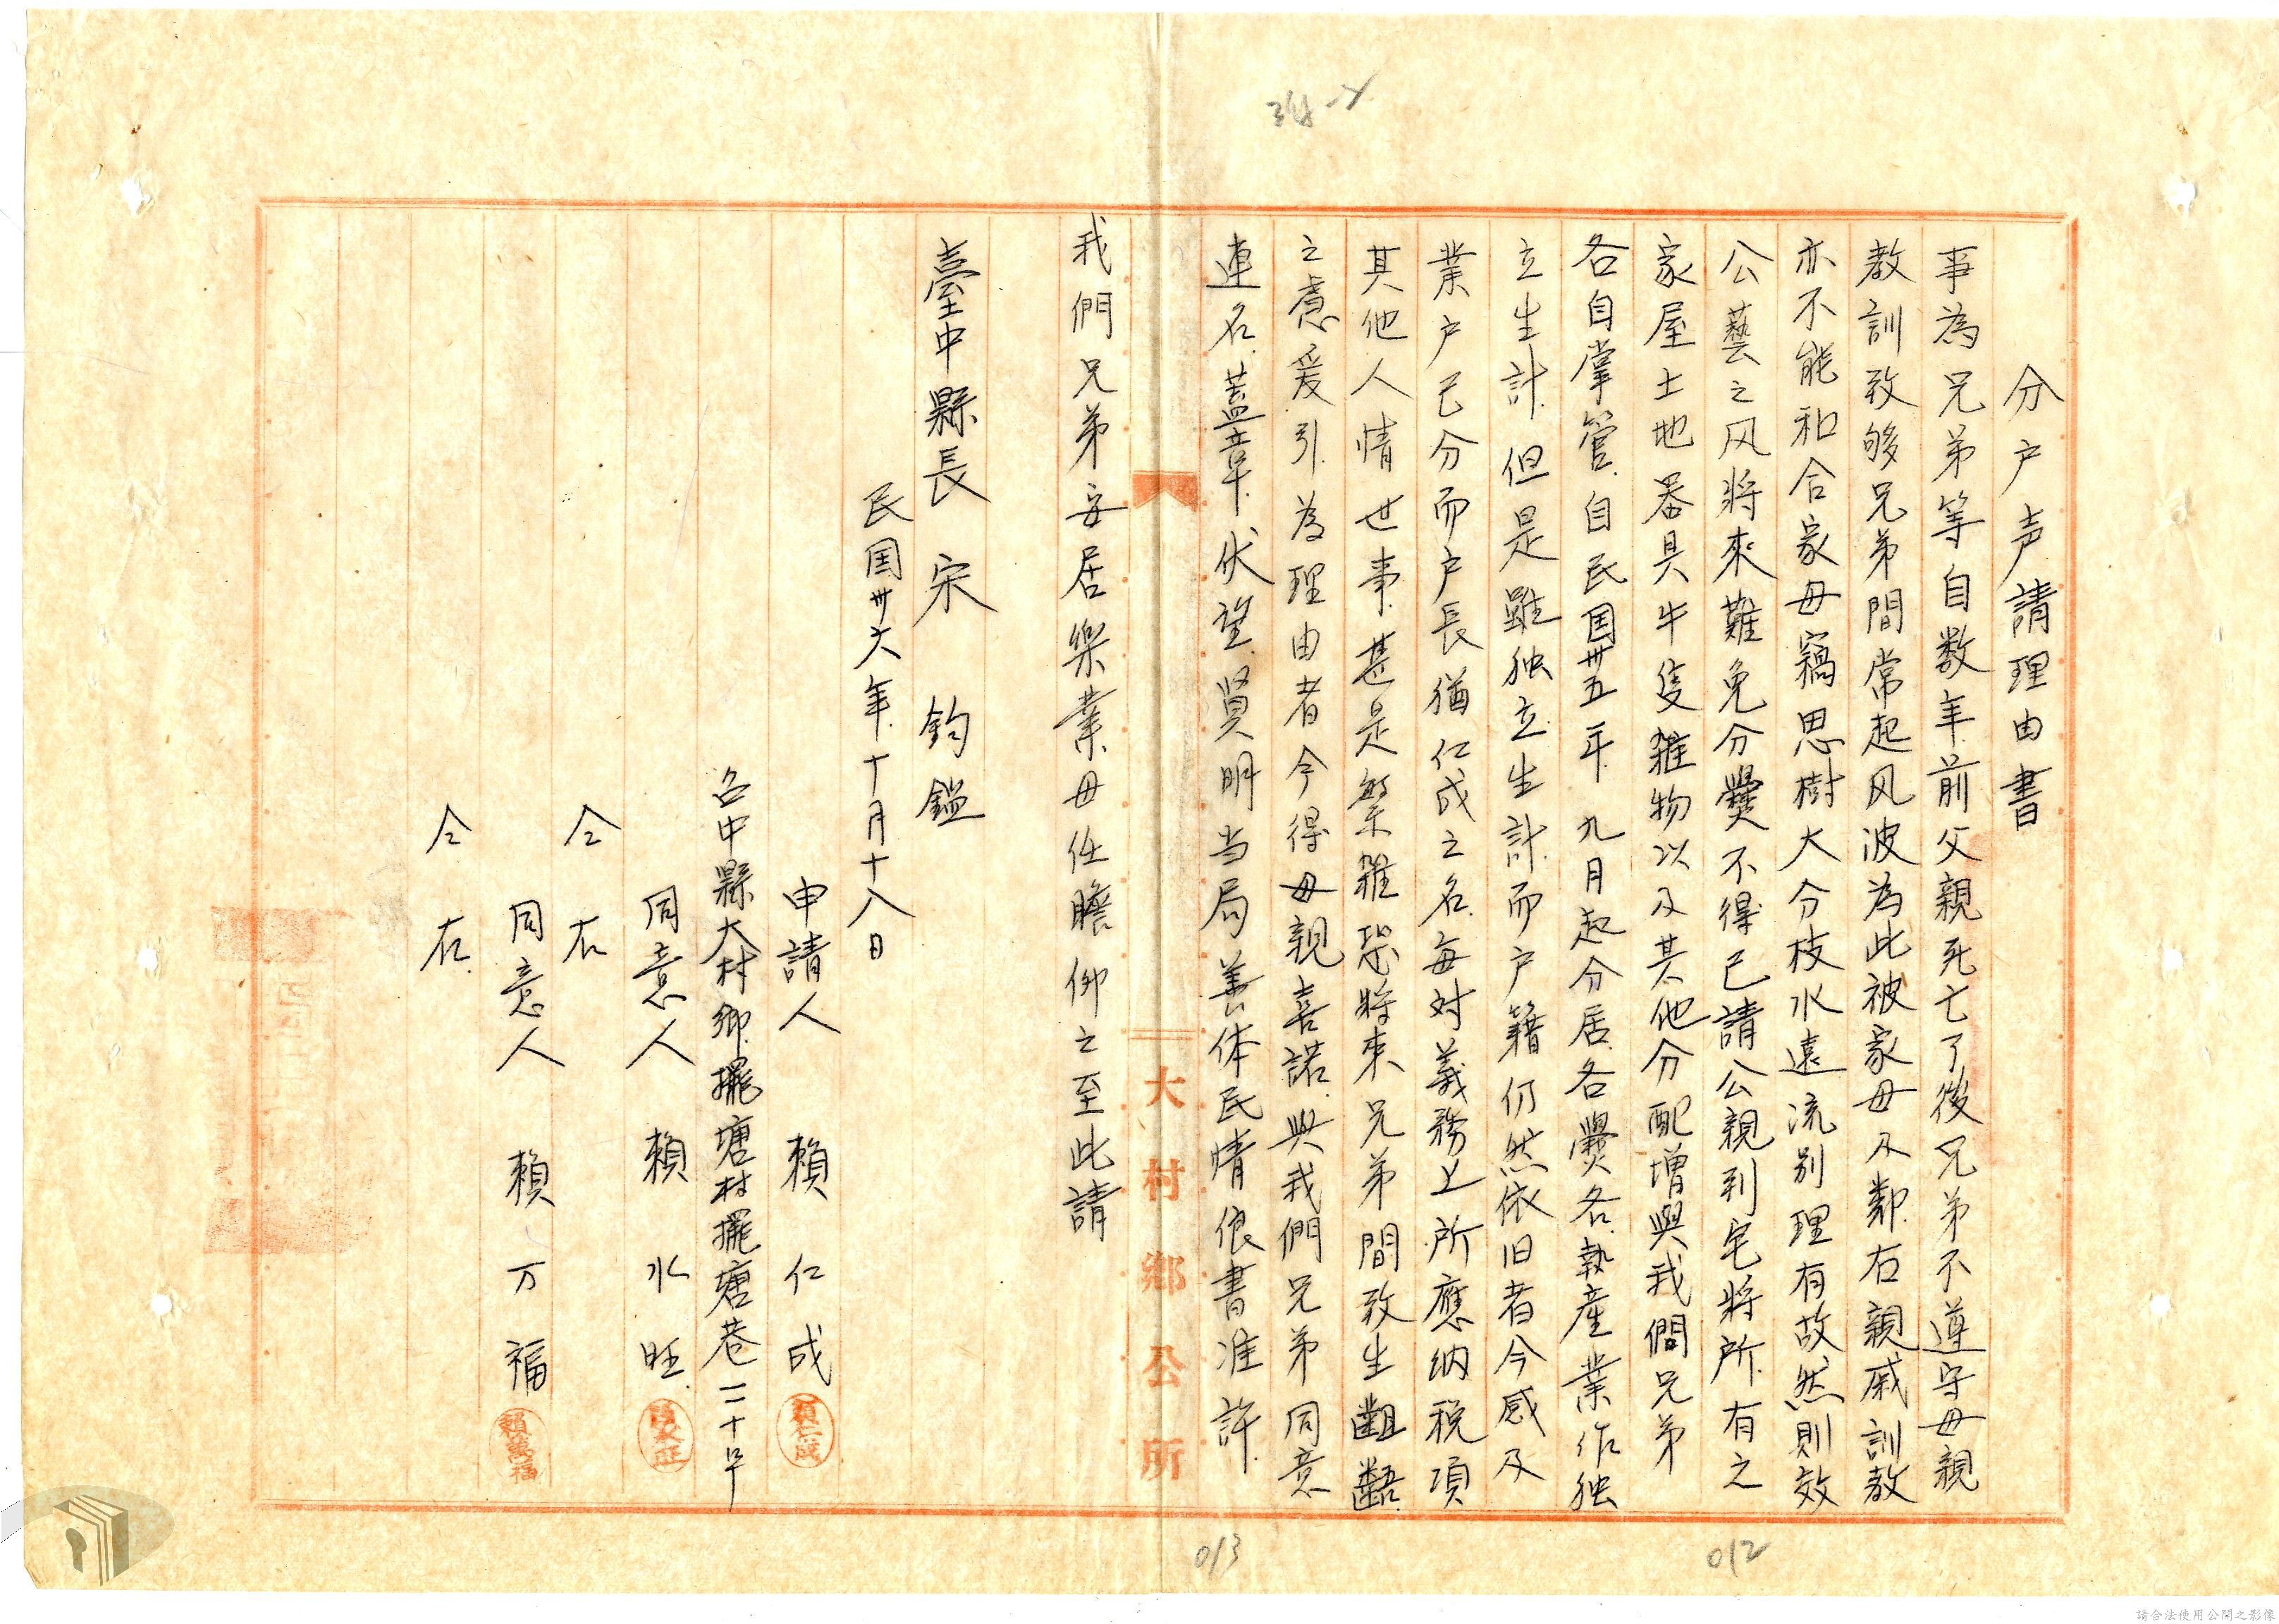 分户声請理由書
事為兄弟等自数年前父親死亡了後兄弟不遵守母親
教訓致够兄弟間常起风波為此被家母及鄰右親戚訓教
亦不能和合家母竊思樹大分枝水遠流別理有故然則效
公藝之风將來難免分爨不得已請公親到宅將所有之
家屋土地器具牛隻雜物以及其他分配增與我們兄弟
各自掌管自民国卅五年九月起分居各爨各執產業作独
立生計但是雖独立生計而户籍仍然依旧者今感及
業户已分而户長猶仁成之名每对義務上所應納稅項
其他人情世事甚是繁雜恐將來兄弟間致生齟齬
之慮爰引為理由者今得母親喜諾與我們兄弟同意
連名蓋章伏望賢明当局善体民情俍書准許
大村鄉公所
我們兄弟安居樂業毋任瞻仰之至此請
臺中縣長 宋 鈞鑑
民国卅六年十月十八日
申請人 賴仁成
賴仁成
台中縣大村鄉擺塘村擺塘巷二十号
同意人 賴水旺
仝右
同意人 賴万福
賴萬福
仝右
013
012
請合法使用公開之影像